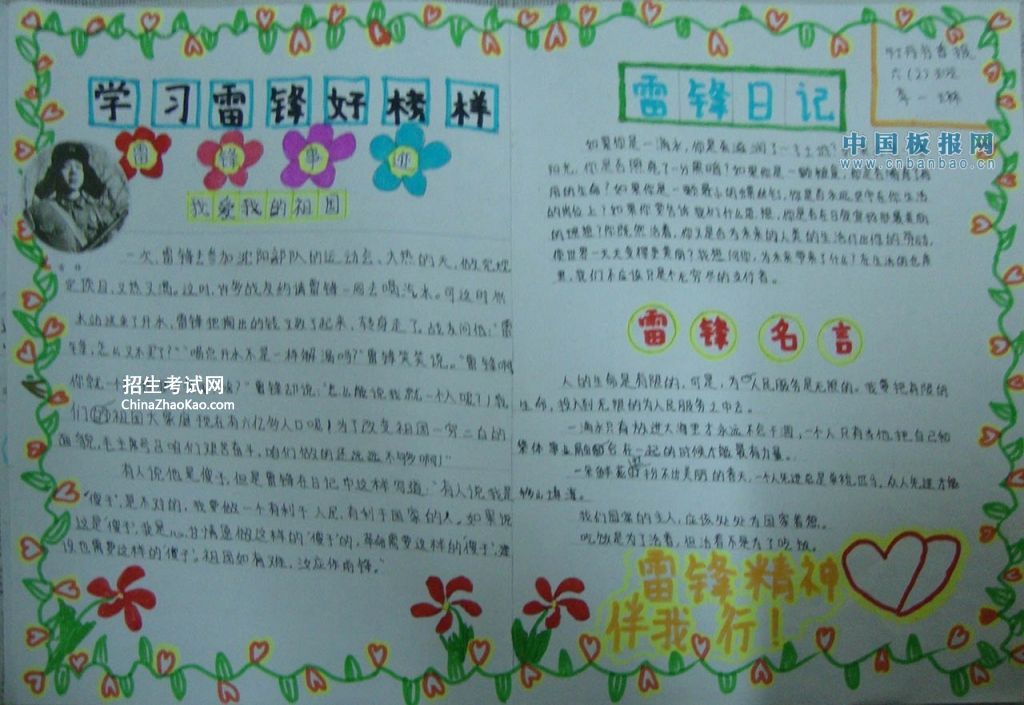 学习雷锋好榜样
雷锋事迹
我爱我的祖国
一次,雷锋去参加沈阳部队的运动会,大热的天,做完规
定项目,又热又渴。这时,许多战友约请雷锋一同去喝汽水。可这时
水站送来了开水,雷锋把掏出的钱又数了起来,转身走了。战友问他:"雷
锋,怎么又不买了?""喝完开水不是一样解渴吗?"雷锋笑笑说。"雷锋啊
你就一个
雷锋却说:"怎么能说我就一个人呢?
们的祖国大家庭现在有六亿多人口呢!为了改变祖国一穷二白的
面貌,毛主席号召咱们艰苦奋斗,咱们做的还远远不够啊!"
有人说他是傻子,但是雷锋在日记中这样写道:"有人说我是
'傻子',是不对的,我要做一个有利于人民,有利于国家的人。如果说
这是'傻子',我是心甘情愿做这样的'傻子'的,革命需要这样的'傻子',建
设也需要这样的'傻子'。祖国如有难,汝应作前锋。"
招生考试网
ChinaZhaoKao.com
雷锋日记
六(2)班
中国板报网
www.cnbanbao.cn
如果你是一滴水,你是否滋润了一寸土地?
阳光,你是否照亮了一分黑暗?如果你是一颗粮食,你是否哺育了有
用的生命?如果你是一颗最小的螺丝钉,你是否永远坚守在你生活
的岗位上?如果你要告诉我们什么思想,你是否在日夜宣扬那最美丽
的理想?你既然活着,你又是否为未来的人类的生活付出你的劳动,
使世界一天天变得更美丽?我想问你,为未来带来了什么?在生活的仓库
里,我们不应该只是个无穷尽的支付者。
雷锋名言
人的生命是有限的,可是,为人民服务是无限的。我要把有限的
生命,投入到无限的为人民服务之中去。
一滴水只有放进大海里才永远不会干涸,一个人只有当他把自己和
集体事业融合在一起的时候才能最有力量。
一朵鲜花打扮不出美丽的春天,一个人先进总是单枪匹马,众人先进才能
移山填海。
我们国家的主人,应该处处为国家着想。
吃饭是为了活着,但活着不是为了吃饭。
雷锋精神
伴我行!